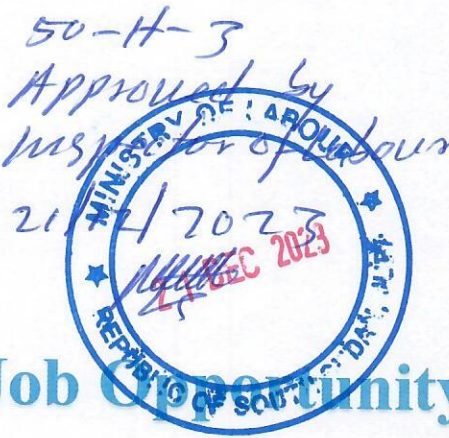 50-H-3
Approved by
Inspector of Labour
21/12/2023
MINISTRY OF LABOUR
21 DEC 2023
REPUBLIC OF SOUTH SUDAN,
Job Opportunity